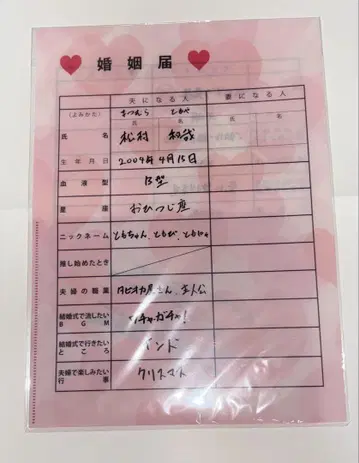 婚姻届
夫になる人 妻になる人
(よみかた) まつむら ともや
氏 名 氏 名
氏名 松村 和哉
生年月日 2004年4月15日
血液型 B型
星座 おひつじ座
ニックネーム ともちゃん、ともぴ、ともにゃ
推し始めたとき
夫婦の職業 タピオカ屋さん、主人公
結婚式で流したいBGM ガチャガチャ!
結婚式で行きたいところ インド
夫婦で楽しみたい行事 クリスマス